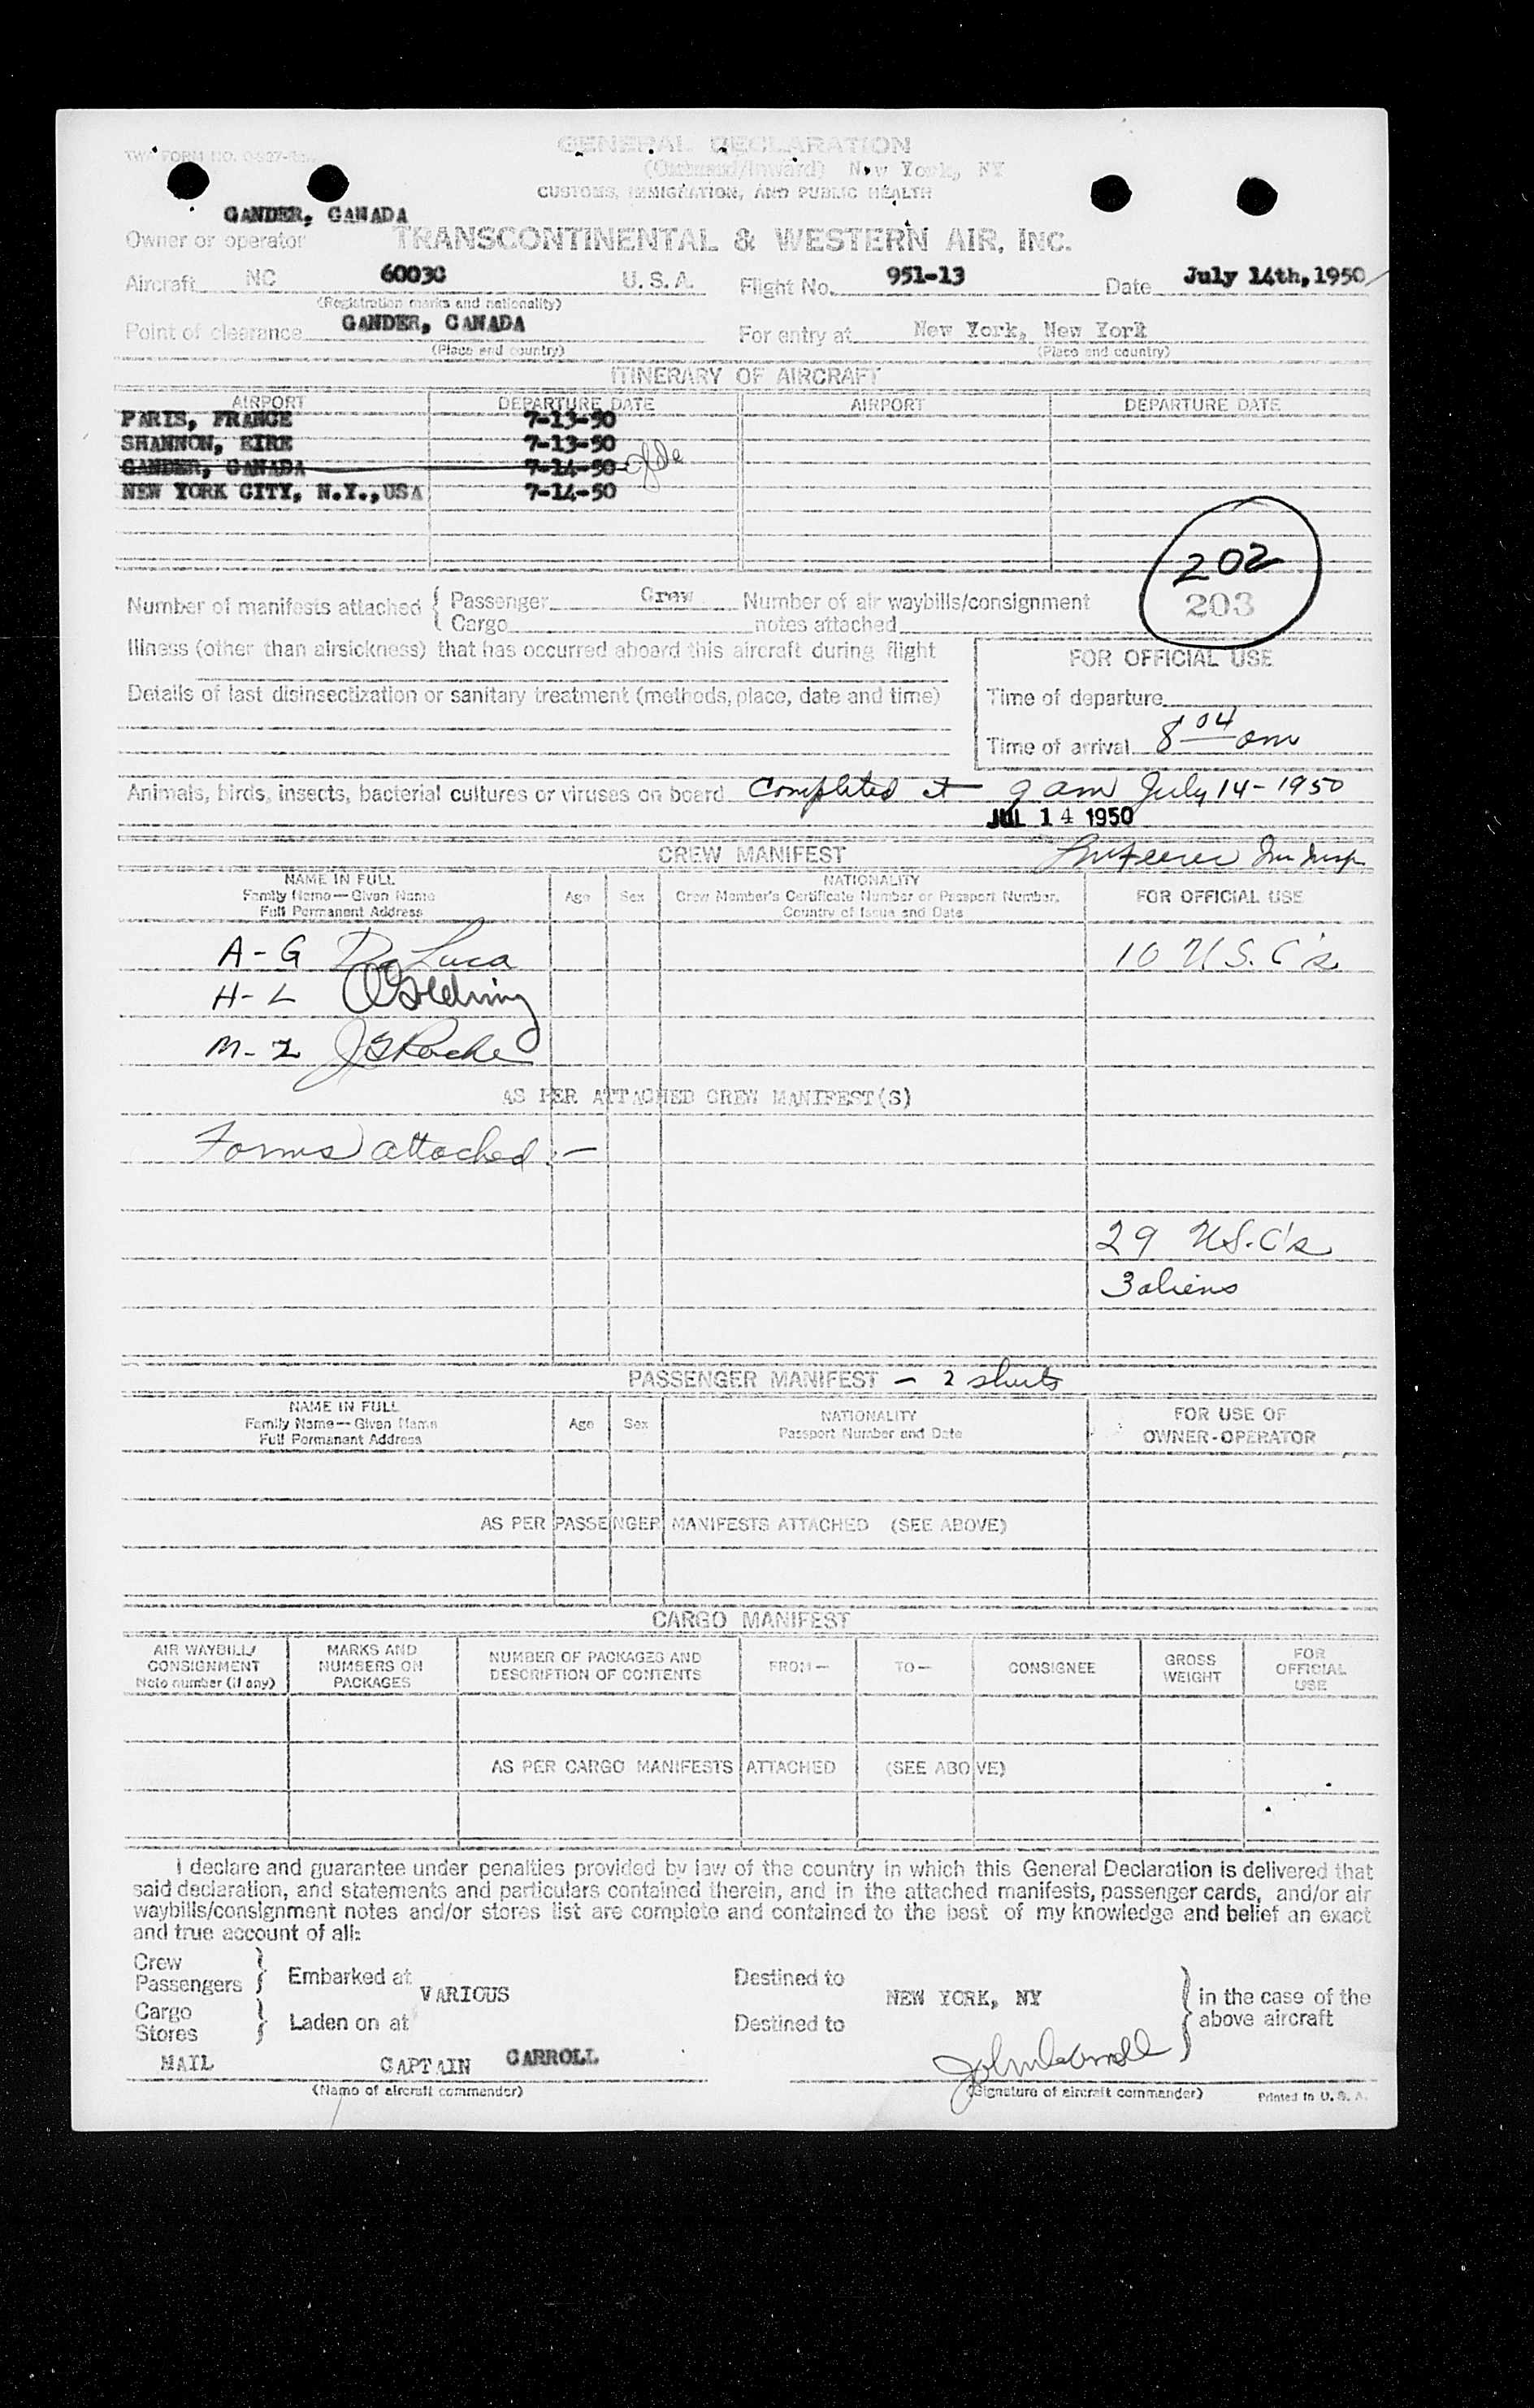 TWA FORM NO.
GENERAL DECLARATION
(Outward/Inward) New York, NY
CUSTOMS, IMMIGRATION, AND PUBLIC HEALTH
GANDER, CANADA
Owner or operator TRANSCONTINENTAL & WESTERN AIR, INC.
Aircraft NC 6003C U. S. A. Flight No. 951-13 Date July 14th, 1950
(Registration marks and nationality)
Point of clearance GANDER, CANADA For entry at New York, New York
(Place and country) (Place and country)
ITINERARY OF AIRCRAFT
AIRPORT DEPARTURE DATE AIRPORT DEPARTURE DATE
PARIS, FRANCE 7-13-50
SHANNON, EIRE 7-13-50
GANDER, CANADA 7-14-50
NEW YORK CITY, N.Y.,USA 7-14-50
202
203
Number of manifests attached { Passenger Crew Number of air waybills/consignment
Cargo notes attached
Illness (other than airsickness) that has occurred aboard this aircraft during flight
FOR OFFICIAL USE
Details of last disinsectization or sanitary treatment (methods, place, date and time)
Time of departure
Time of arrival 8 04 am
Animals, birds, insects, bacterial cultures or viruses on board Completed at 9 am July 14-1950
JUL 14 1950
CREW MANIFEST Im Insp
NAME IN FULL
Family Name—Given Name
Full Permanent Address
Age Sex
NATIONALITY
Crew Member's Certificate Number or Passport Number,
Country of Issue and Date
FOR OFFICIAL USE
A-G De Luca 10 U.S.C's
H-L Goldring
M-Z J G Roche
AS PER ATTACHED CREW MANIFEST(S)
Forms attached:—
29 U.S.C's
3 aliens
PASSENGER MANIFEST — 2 sheets
NAME IN FULL
Family Name—Given Name
Full Permanent Address
Age Sex
NATIONALITY
Passport Number and Date
FOR USE OF
OWNER-OPERATOR
AS PER PASSENGER MANIFESTS ATTACHED (SEE ABOVE)
CARGO MANIFEST
AIR WAYBILL/
CONSIGNMENT
Note number (if any)
MARKS AND
NUMBERS ON
PACKAGES
NUMBER OF PACKAGES AND
DESCRIPTION OF CONTENTS
FROM— TO— CONSIGNEE
GROSS
WEIGHT
FOR
OFFICIAL
USE
AS PER CARGO MANIFESTS ATTACHED (SEE ABOVE)
I declare and guarantee under penalties provided by law of the country in which this General Declaration is delivered that
said declaration, and statements and particulars contained therein, and in the attached manifests, passenger cards, and/or air
waybills/consignment notes and/or stores list are complete and contained to the best of my knowledge and belief an exact
and true account of all:
Crew
Passengers } Embarked at VARIOUS Destined to NEW YORK, NY
Cargo
Stores } Laden on at Destined to
} in the case of the
above aircraft
MAIL CAPTAIN CARROLL John Carroll
(Name of aircraft commander) (Signature of aircraft commander) Printed in U. S. A.